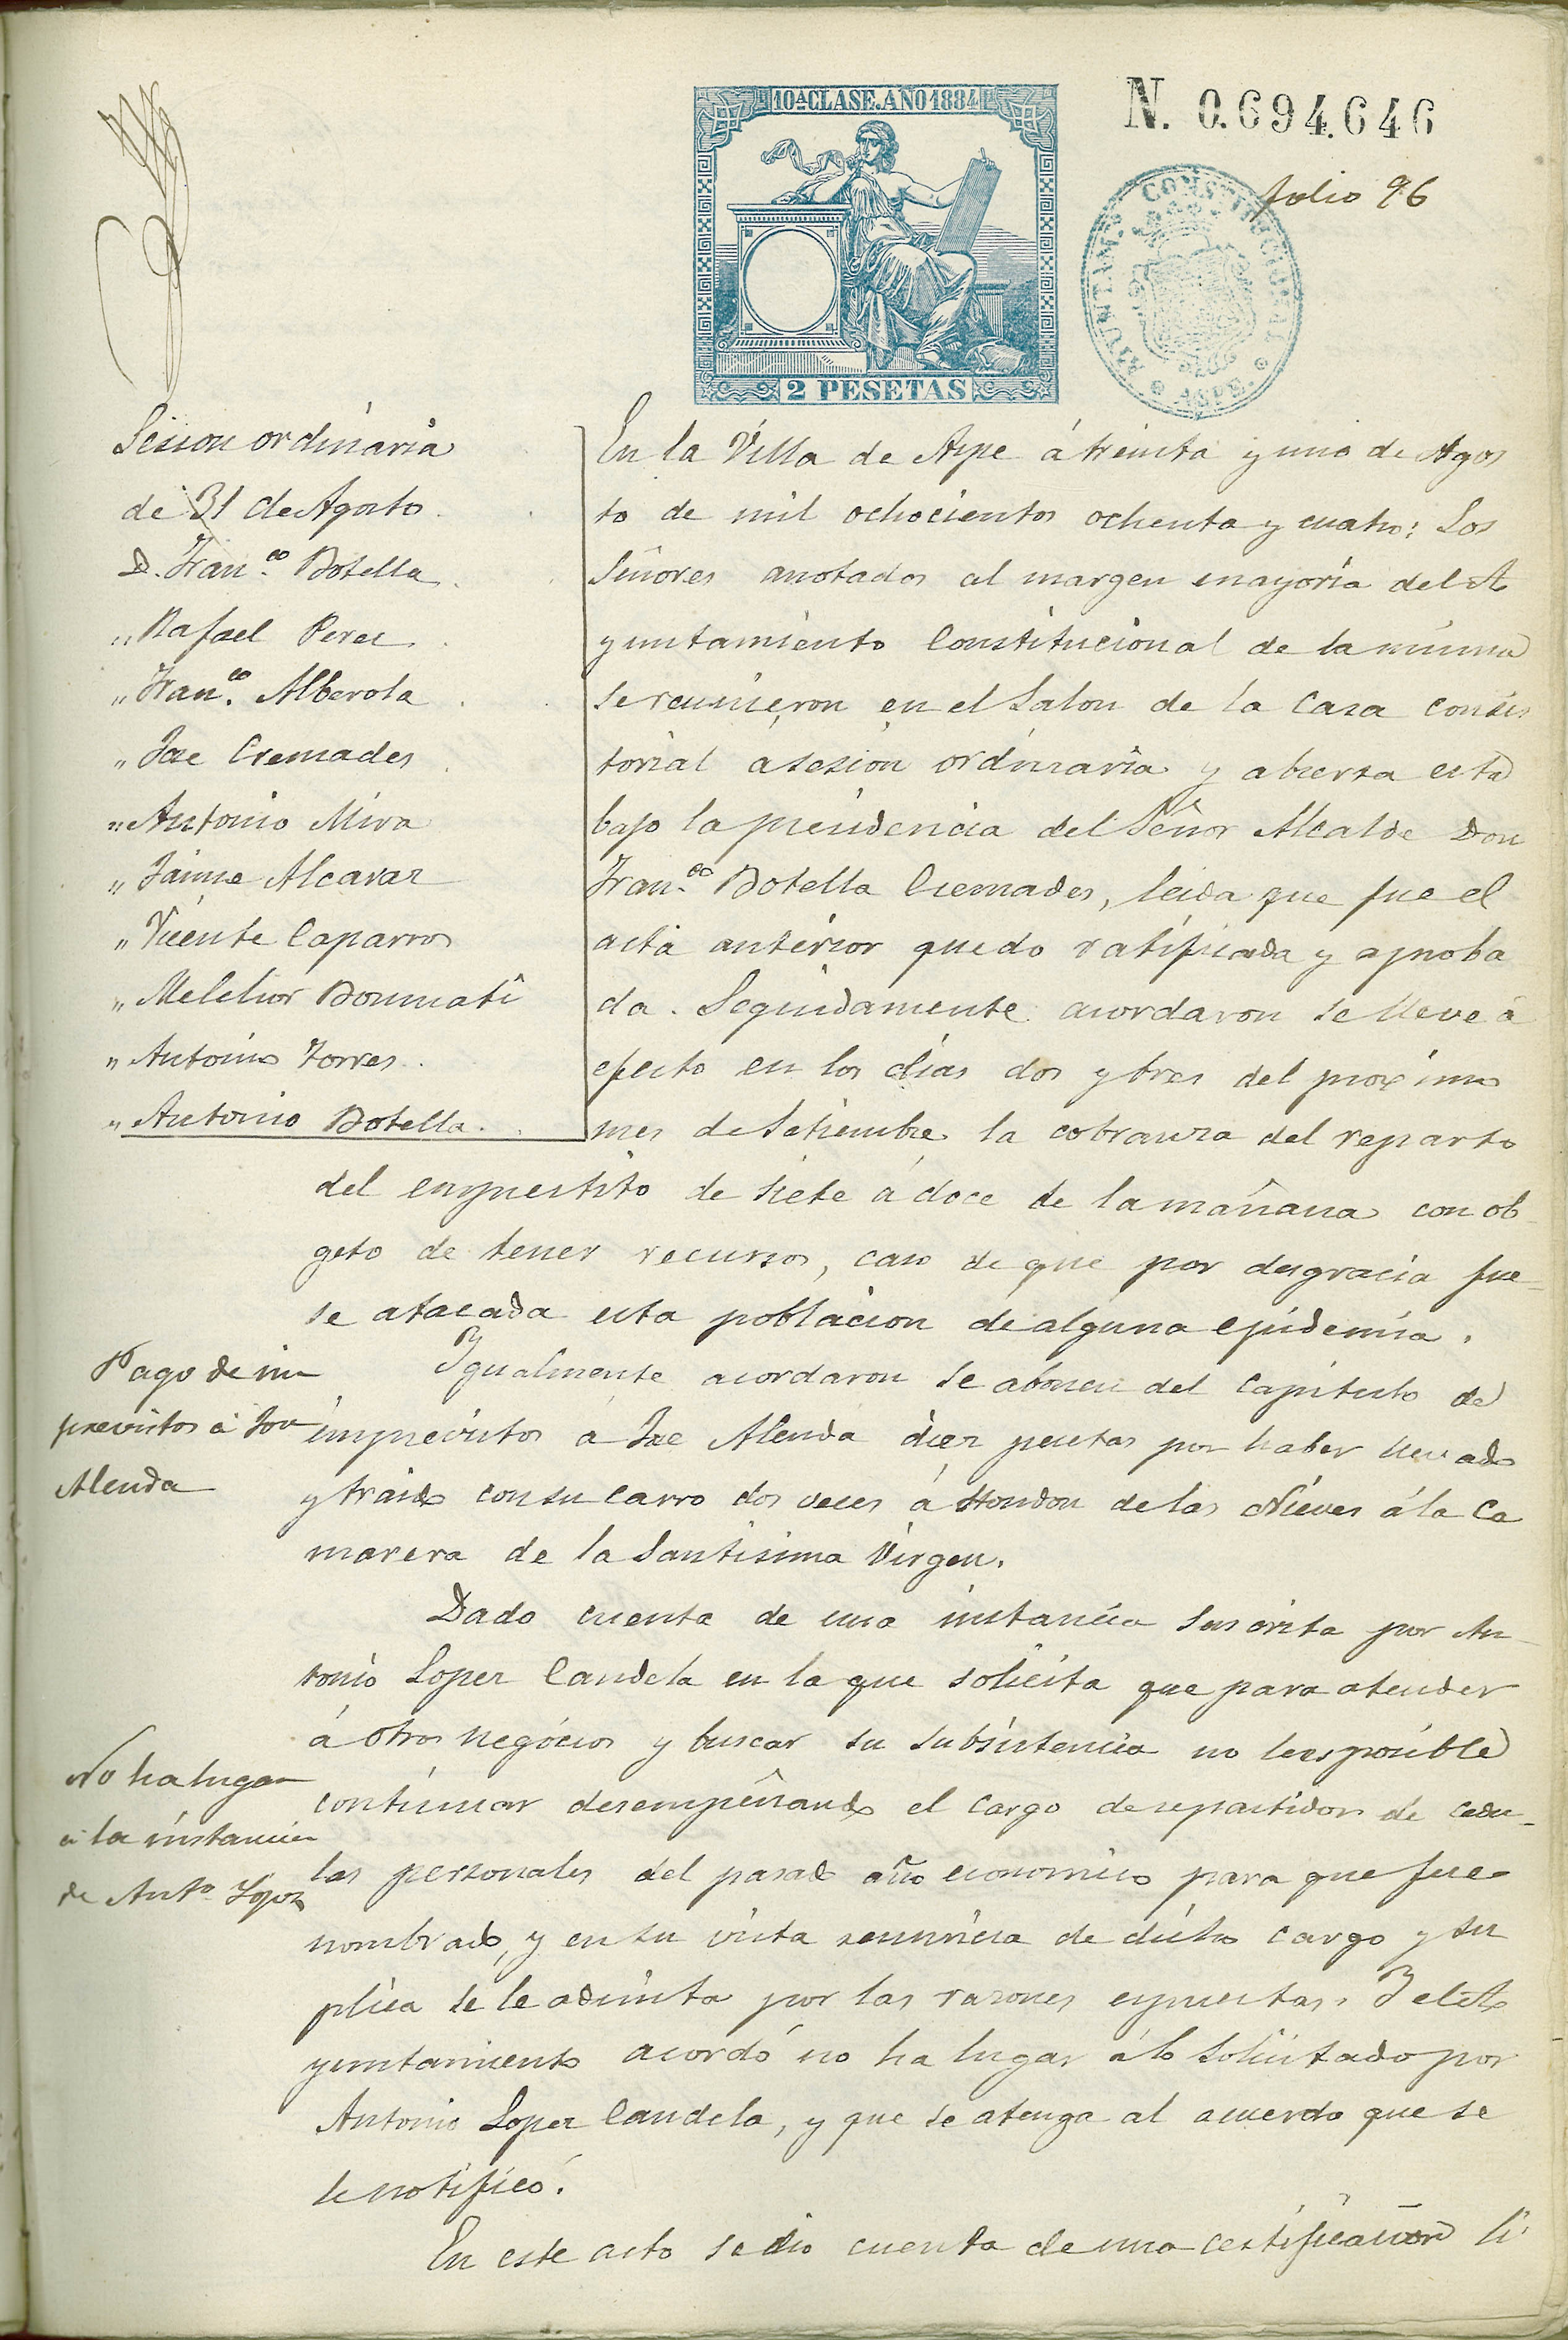 10ª CLASE. AÑO 1884
2 PESETAS
N. 0.694.646
folio 96
AYUNTAMTO. CONSTITUCIONAL
ASPE.
Sesion ordinaria
de 31 de Agosto
D. Fran.co Botella
" Rafael Perez
" Fran.co Alberola
" Jose Cremades
" Antonio Mira
" Jaime Alcaraz
" Vicente Caparros
" Melchor Bonmatí
" Antonio Torres
" Antonio Botella
En la Villa de Aspe á treinta y uno de Agos
to de mil ochocientos ochenta y cuatro; Los
Señores anotados al margen mayoría del A
yuntamiento Constitucional de la misma
se reunieron en el Salon de la Casa Consis
torial á sesion ordinaria y abierta esta
bajo la presidencia del Señor Alcalde Don
Fran.co Botella Cremades, leida que fue el
acta anterior quedo ratificada y aproba
da. Seguidamente acordaron se lleve á
efecto en los dias dos y tres del proximo
mes de Setiembre la cobranza del reparto
del empréstito de siete á doce de la mañana con ob
geto de tener recursos, caso de que por desgracia fue-
se atacada esta poblacion de alguna epidemia.
Pago de im
previstos á Jose
Alenda
Igualmente acordaron se abonen del capitulo de
imprevistos á Jose Alenda diez pesetas por haber llevado
y traido con su carro dos veces á Hondon de las Nieves á la Ca
marera de la Santisima Virgen.
Dado cuenta de una instancia suscrita por An-
tonio Lopez Candela en la que solicita que para atender
á otros negócios y buscar su subsistencia no le es posible
No ha lugar
á la instancia
de Anto. Lopez
continuar desempeñando el cargo de repartidor de cedu-
las personales del pasado año economico para que fue
nombrado, y en su vista renuncia de dicho cargo y su
plica se le admita por las razones expuestas. Y el A
yuntamiento acordó no ha lugar á lo solicitado por
Antonio Lopez Candela, y que se atenga al acuerdo que se
le notificó.
En este acto se dio cuenta de una certificacion li